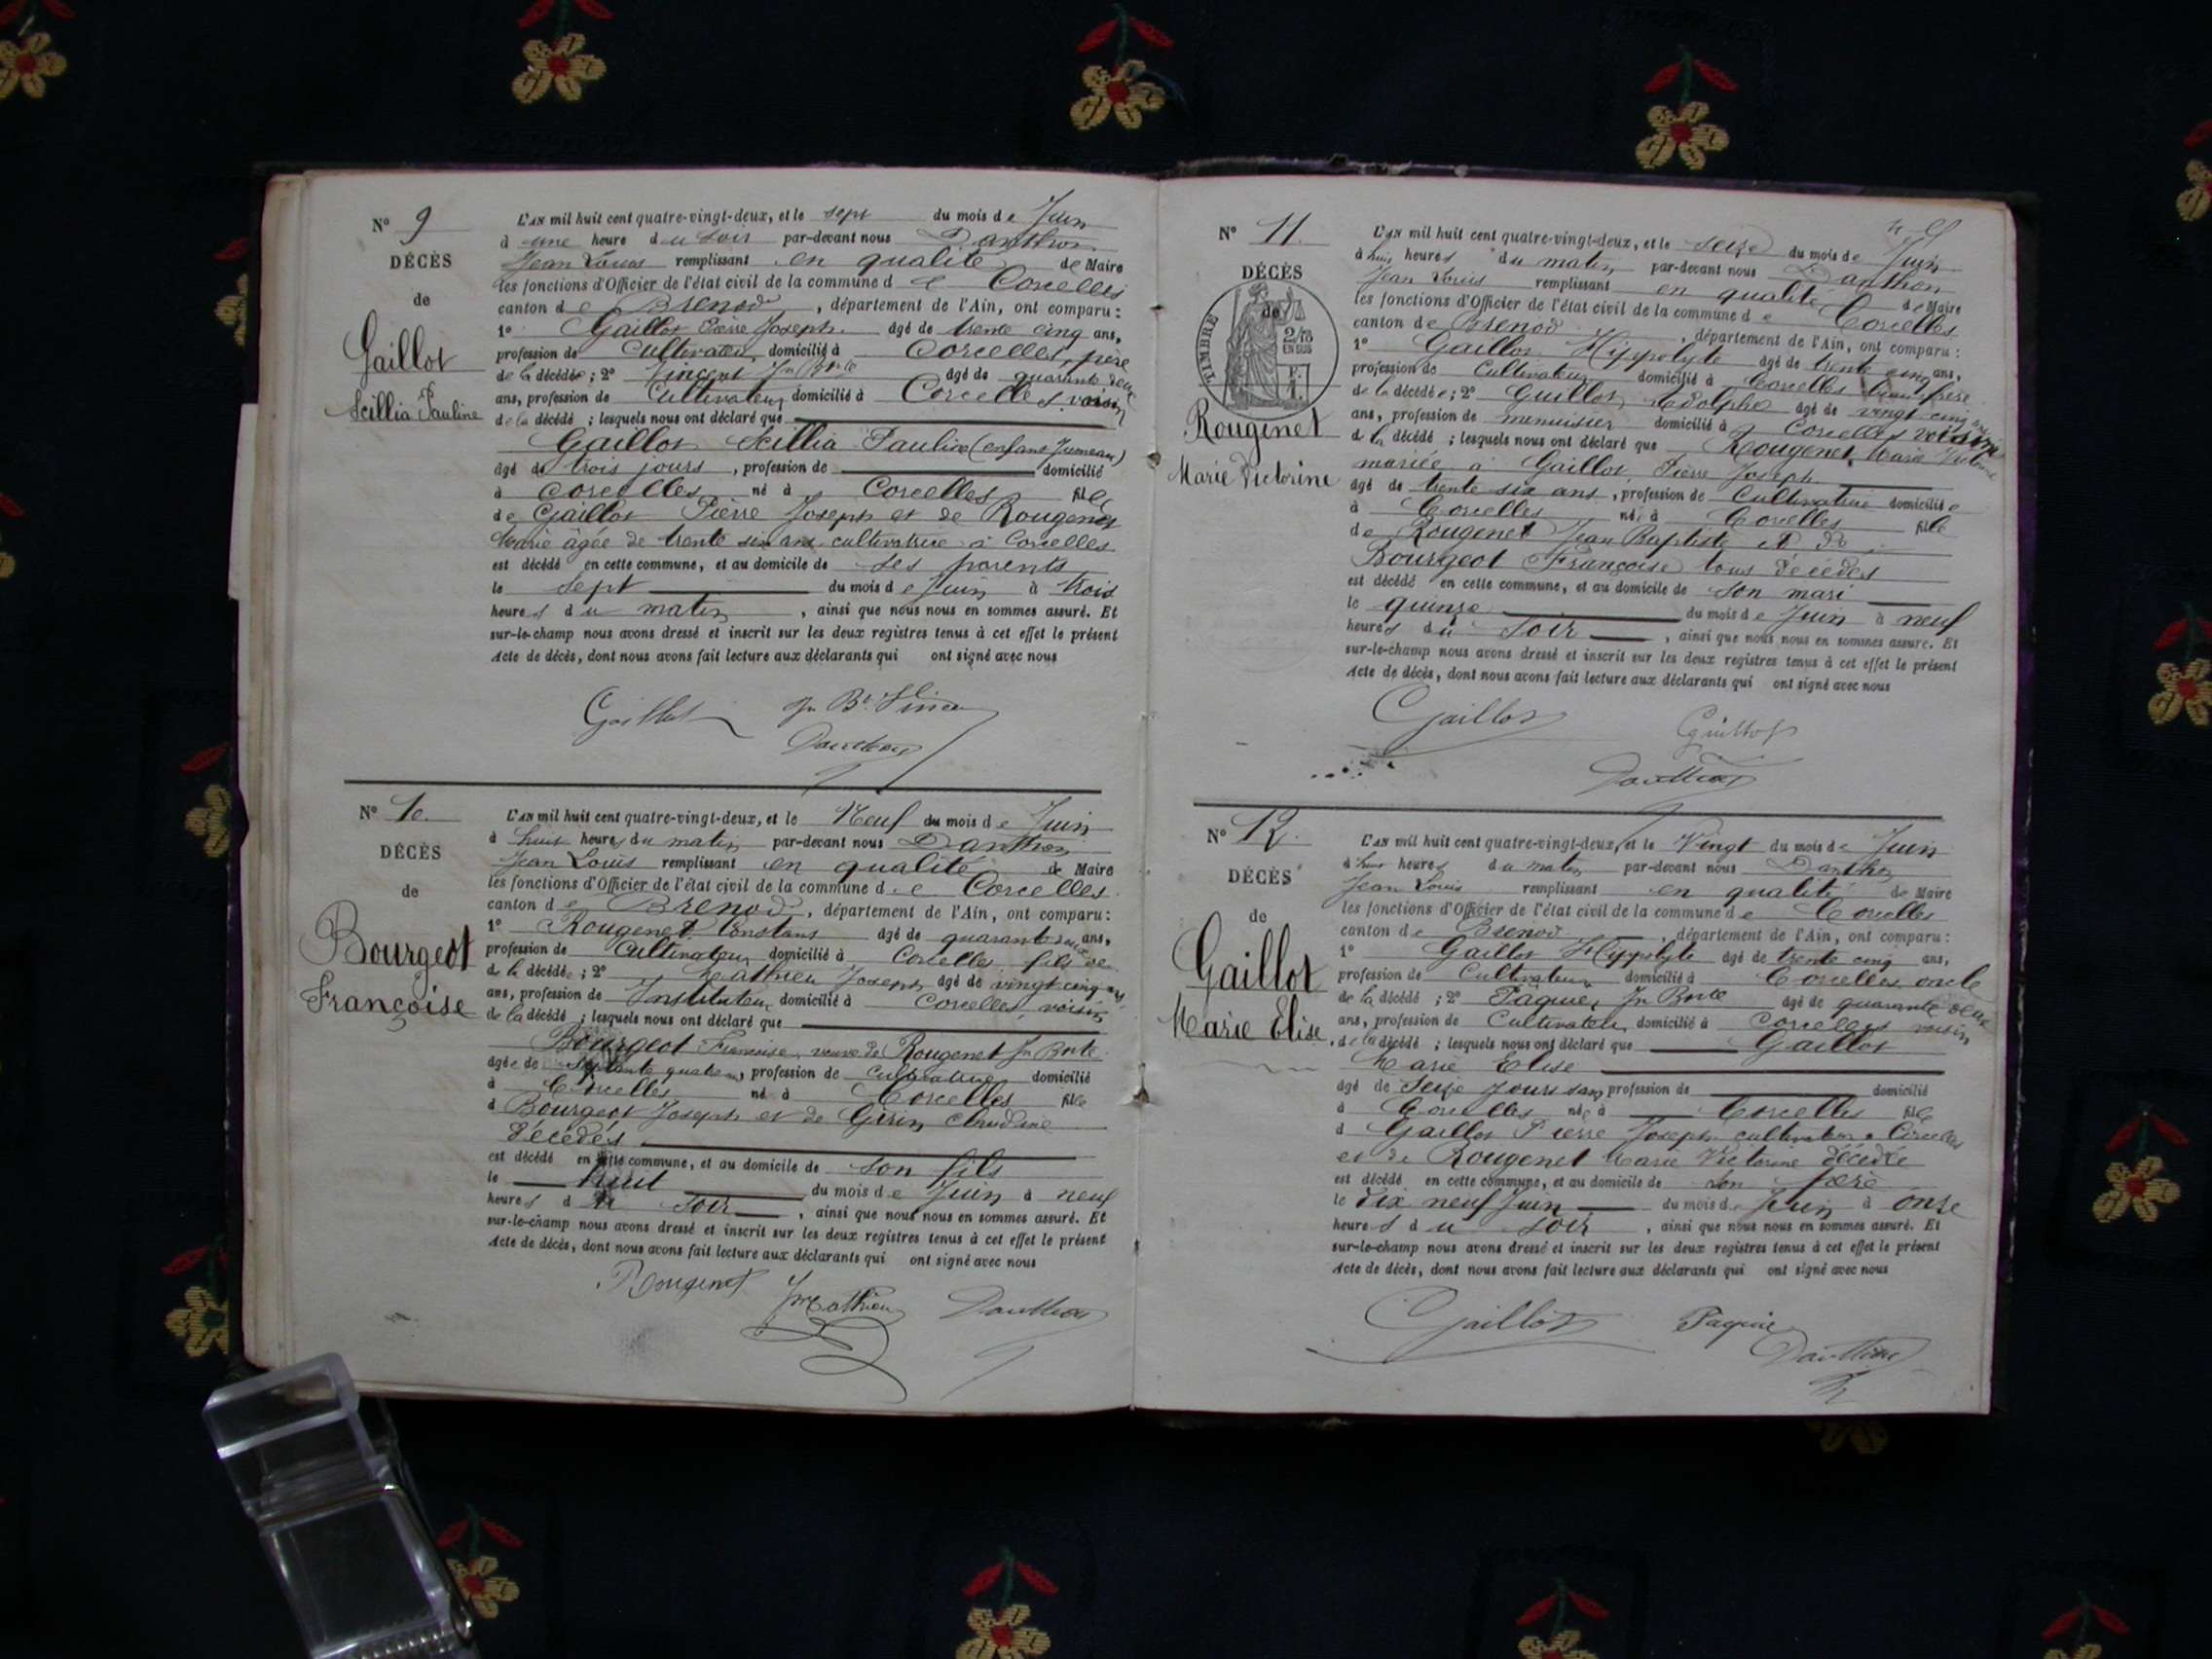 N° 9
DÉCÈS
de
Gaillot
Scillia Pauline
L'AN mil huit cent quatre-vingt-deux, et le sept du mois de Juin
à une heure du soir par-devant nous Danthon
Jean Louis remplissant en qualité de Maire
les fonctions d'Officier de l'état civil de la commune de Corcelles
canton de Brenod, département de l'Ain, ont comparu :
1° Gaillot Pierre Joseph âgé de trente cinq ans,
profession de Cultivateur domicilié à Corcelles, père
de la décédée ; 2° Vincent Jn Bte âgé de quarante deux
ans, profession de Cultivateur domicilié à Corcelles, voisin
de la décédé ; lesquels nous ont déclaré que
Gaillot Scillia Pauline (enfant Jumeau)
âgé de trois jours, profession de domicilié
à Corcelles né à Corcelles fille
de Gaillot Pierre Joseph et de Rougenet
Marie âgée de trente six ans cultivatrice à Corcelles
est décédé en cette commune, et au domicile de ses parents
le sept du mois de Juin à trois
heures du matin, ainsi que nous nous en sommes assuré. Et
sur-le-champ nous avons dressé et inscrit sur les deux registres tenus à cet effet le présent
Acte de décès, dont nous avons fait lecture aux déclarants qui ont signé avec nous
Gaillot Jn Bte Vincent
Danthon
N° 10.
DÉCÈS
de
Bourgeot
Françoise
L'AN mil huit cent quatre-vingt-deux, et le Neuf du mois de Juin
à huit heures du matin par-devant nous Danthon
Jean Louis remplissant en qualité de Maire
les fonctions d'Officier de l'état civil de la commune de Corcelles
canton de Brenod, département de l'Ain, ont comparu :
1° Rougenet Constant âgé de quarante deux ans,
profession de Cultivateur domicilié à Corcelles fils de
de la décédée ; 2° Mathieu Joseph âgé de vingt cinq ans
ans, profession de Instituteur domicilié à Corcelles, voisin
de la décédé ; lesquels nous ont déclaré que
Bourgeot Francoise veuve de Rougenet Jn Bte
âgée de septante quatre, profession de cultivatrice domicilié
à Corcelles né à Corcelles fille
d Bourgeot Joseph et de Girin Claudine
décédés
est décédé en cette commune, et au domicile de son fils
le huit du mois de Juin à neuf
heures du soir, ainsi que nous nous en sommes assuré. Et
sur-le-champ nous avons dressé et inscrit sur les deux registres tenus à cet effet le présent
Acte de décès, dont nous avons fait lecture aux déclarants qui ont signé avec nous
Rougenet Mathieu Danthon
N° 11.
DÉCÈS
de
TIMBRE
2/10
EN SUS
Rougenet
Marie Victorine
L'AN mil huit cent quatre-vingt-deux, et le seize du mois de Juin
à huit heures du matin par-devant nous Danthon
Jean Louis remplissant en qualité de Maire
les fonctions d'Officier de l'état civil de la commune de Corcelles
canton de Brenod, département de l'Ain, ont comparu :
1° Gaillot Hippolyte âgé de trente cinq ans,
profession de Cultivateur domicilié à Corcelles beau frère
de la décédée ; 2° Guillot Adolphe âgé de vingt cinq
ans, profession de menuisier domicilié à Corcelles voisin
de la décédé ; lesquels nous ont déclaré que Rougenet Marie Victorine
mariée à Gaillot Pierre Joseph
âgé de trente six ans, profession de Cultivatrice domiciliée
à Corcelles née à Corcelles fille
de Rougenet Jean Baptiste et de
Bourgeot Françoise tous décédés
est décédé en cette commune, et au domicile de son mari
le quinze du mois de Juin à neuf
heures du soir, ainsi que nous nous en sommes assuré. Et
sur-le-champ nous avons dressé et inscrit sur les deux registres tenus à cet effet le présent
Acte de décès, dont nous avons fait lecture aux déclarants qui ont signé avec nous
Gaillot Guillot
Danthon
N° 12.
DÉCÈS
de
Gaillot
Marie Elise
L'AN mil huit cent quatre-vingt-deux, et le Vingt du mois de Juin
à huit heures du matin par-devant nous Danthon
Jean Louis remplissant en qualité de Maire
les fonctions d'Officier de l'état civil de la commune de Corcelles
canton de Brenod, département de l'Ain, ont comparu :
1° Gaillot Hippolyte âgé de trente cinq ans,
profession de Cultivateur domicilié à Corcelles oncle
de la décédé ; 2° Paquie Jn Bte âgé de quarante deux
ans, profession de Cultivateur domicilié à Corcelles voisin
de la décédé ; lesquels nous ont déclaré que Gaillot
Marie Elise
âgé de Seize jours sans profession de domicilié
à Corcelles née à Corcelles fille
d Gaillot Pierre Joseph cultivateur à Corcelles
et de Rougenet Marie Victorine décédée
est décédé en cette commune, et au domicile de son père
le dix neuf Juin du mois de Juin à onze
heures du soir, ainsi que nous nous en sommes assuré. Et
sur-le-champ nous avons dressé et inscrit sur les deux registres tenus à cet effet le présent
Acte de décès, dont nous avons fait lecture aux déclarants qui ont signé avec nous
Gaillot Paquie
Danthon